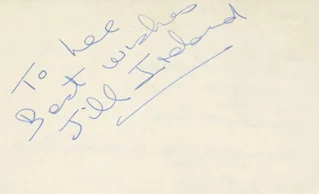 To Lee
Best wishes
Jill Ireland